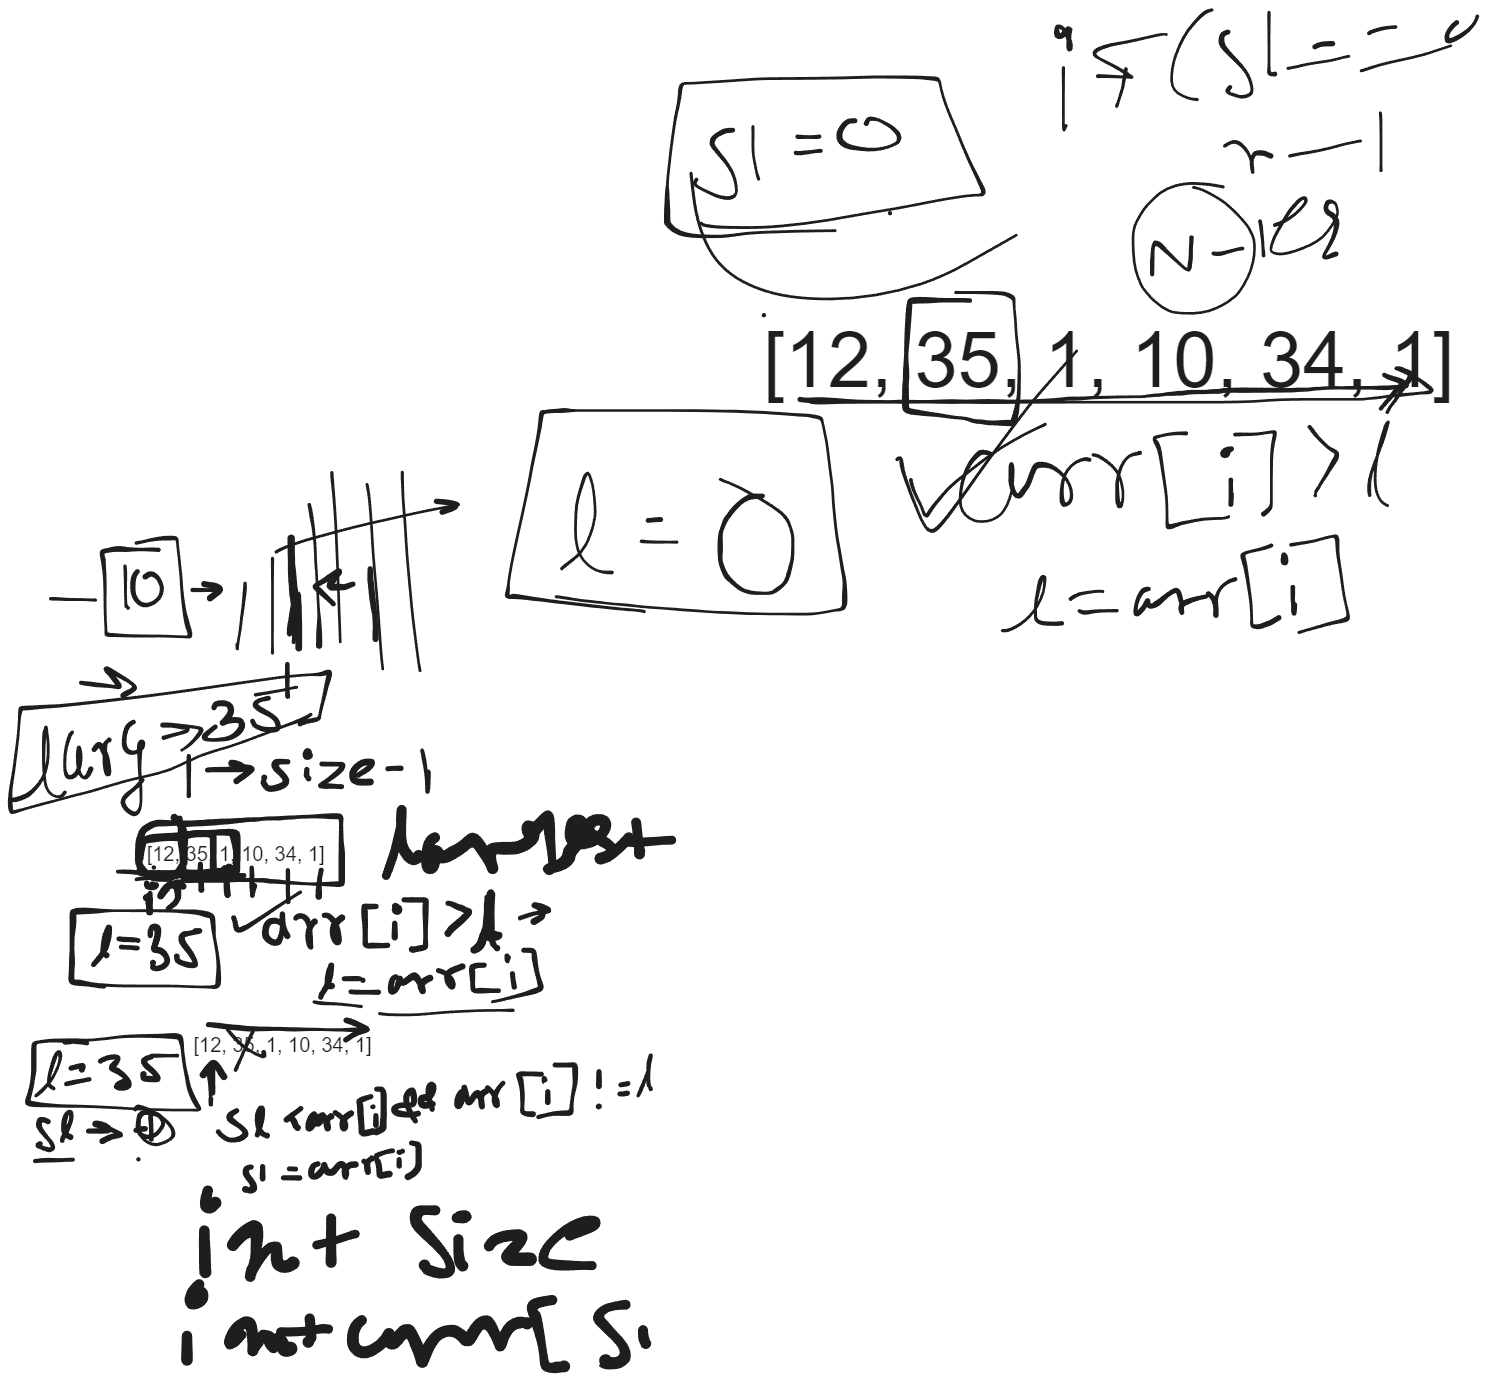 if (sl == 0
r - 1
sl = 0
N - 1
[12, 35, 1, 10, 34, 1]
arr[i] > l
l = 0
l = arr[i]
10 →
larg → 35
1 → size - 1
[12, 35, 1, 10, 34, 1]
largest
l = 35
arr[i] > l →
l = arr[i]
[12, 35, 1, 10, 34, 1]
l = 35
sl →
sl < arr[i] && arr[i] != l
sl = arr[i]
int size
int arr[ si